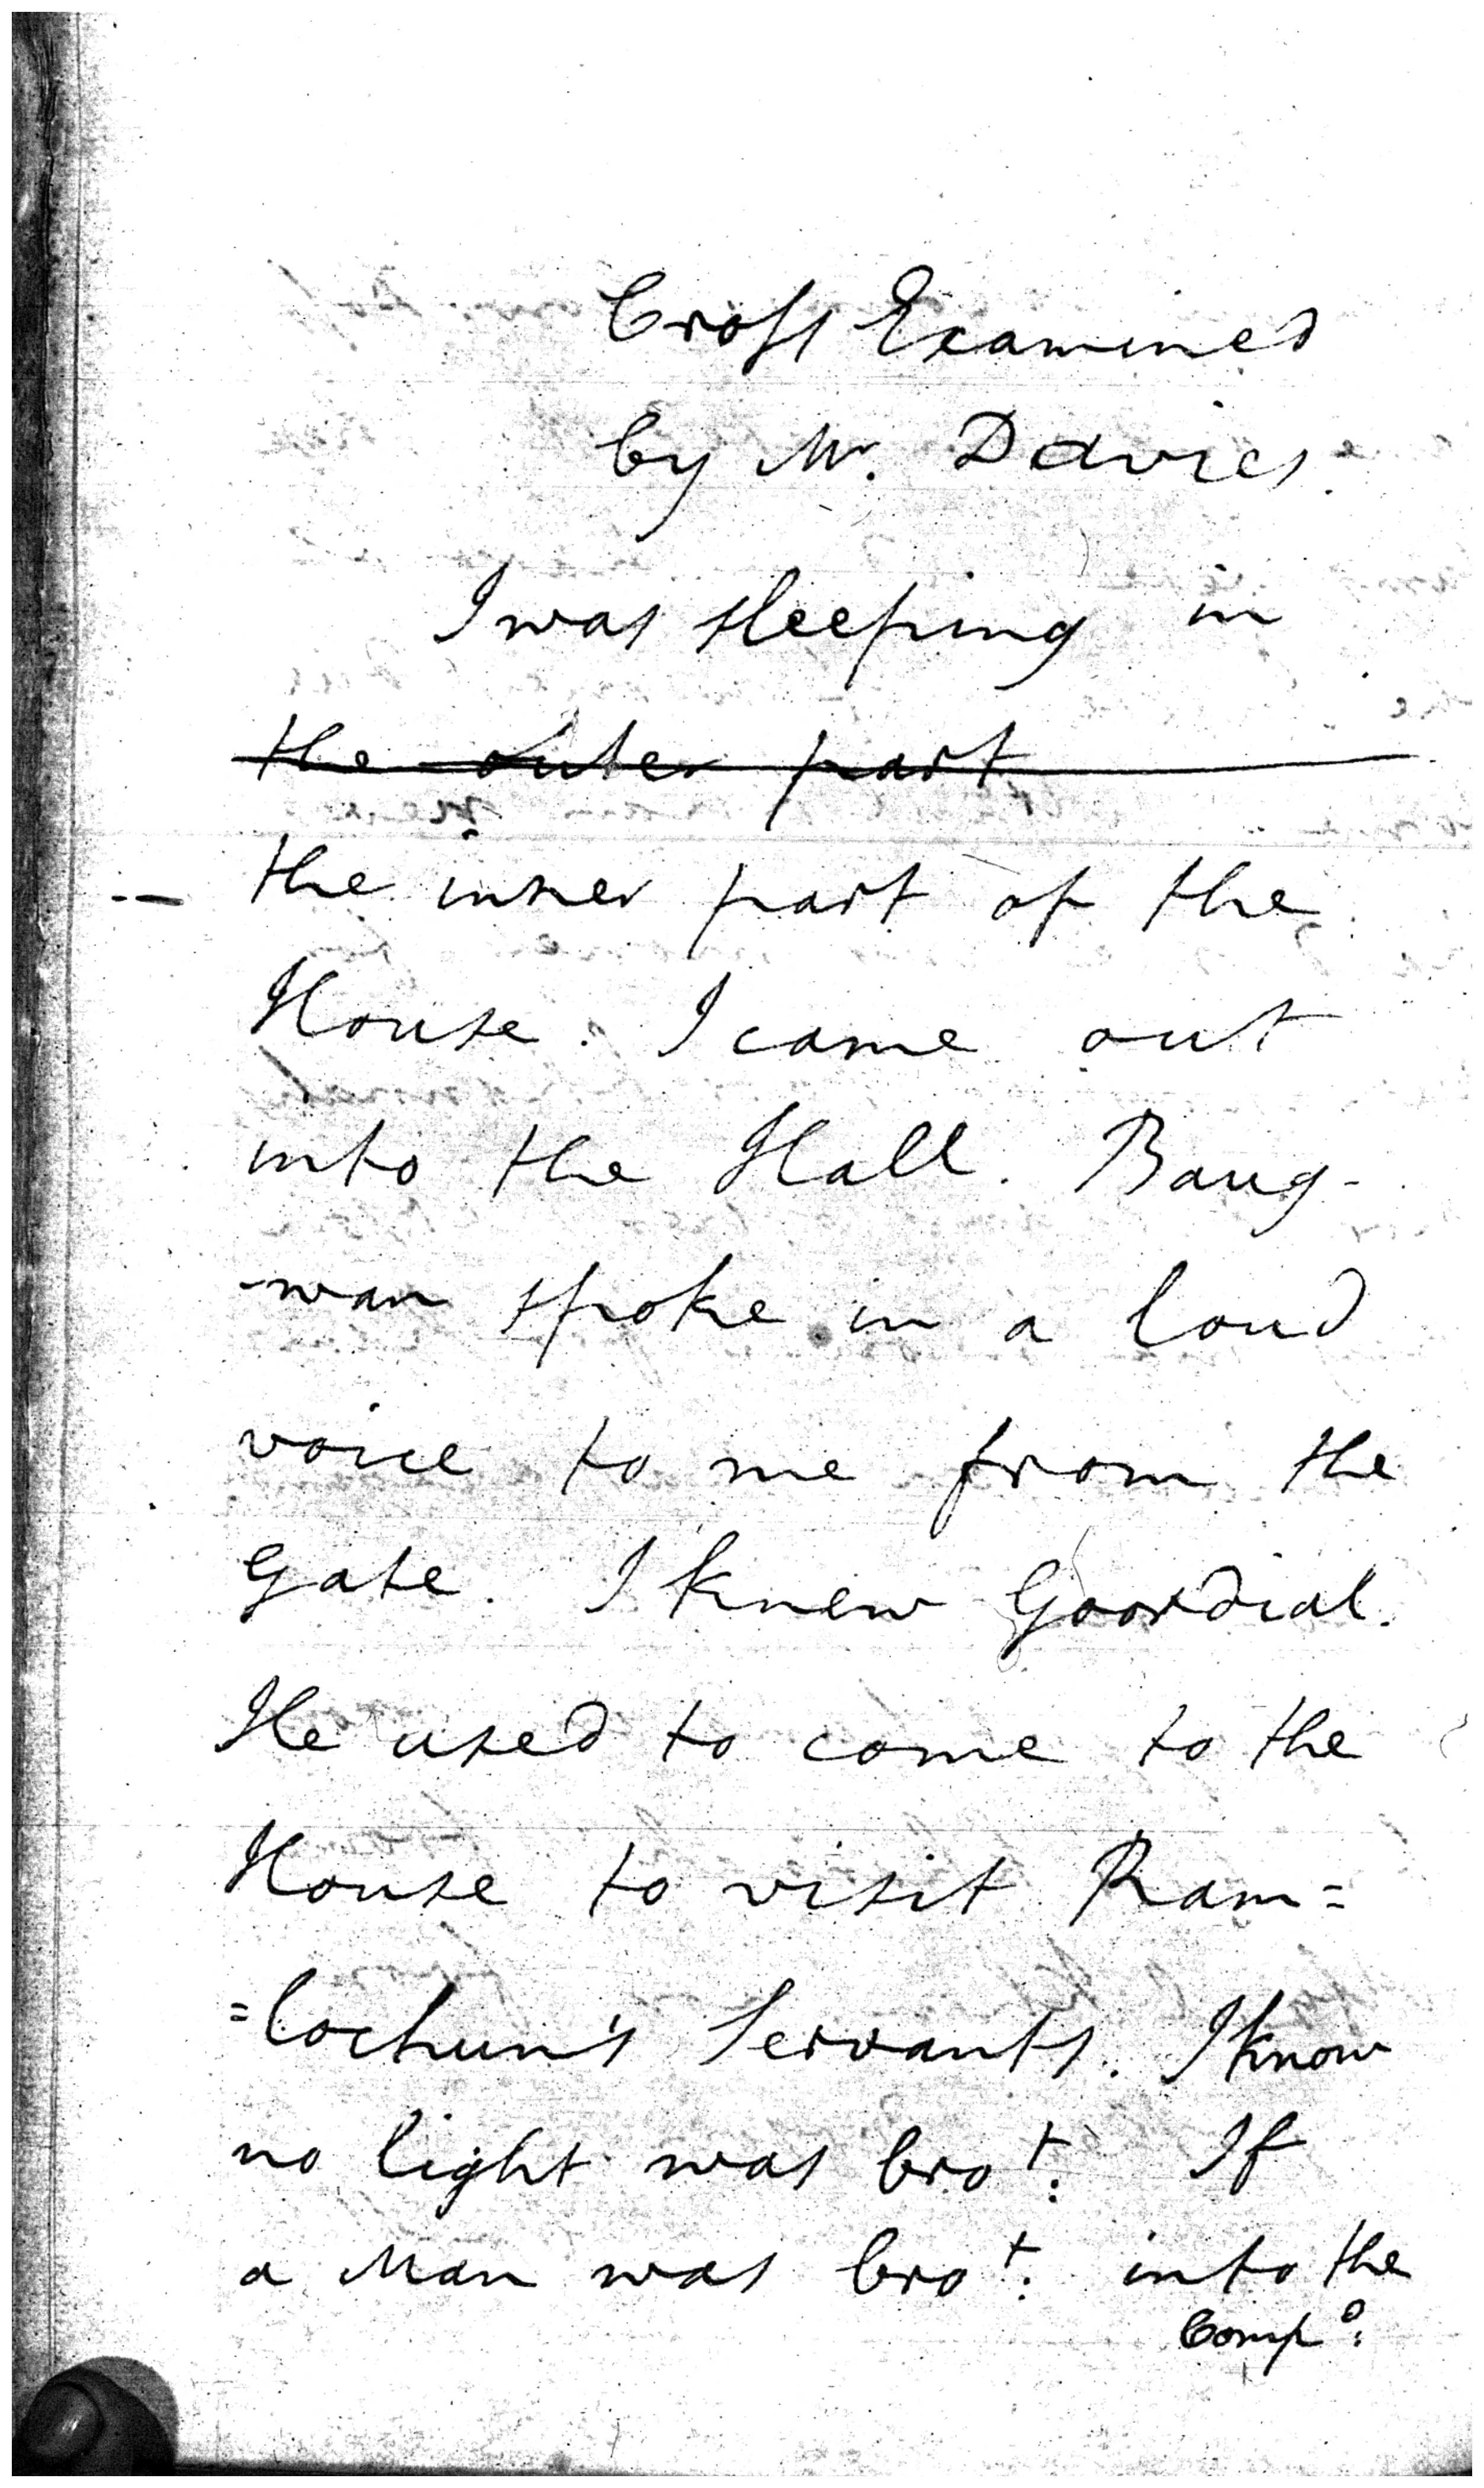 Cross Examined
by Mr. Davies.
I was sleeping in
~~the outer part~~
the inner part of the
House. I came out
into the Hall. Baug-
-wan spoke in a loud
voice to me from the
Gate. I knew Goordial.
He used to come to the
House to visit Ram=
=lochun's Servants. I know
no light was bro^t: If
a Man was bro^t: into the
Comp^d: